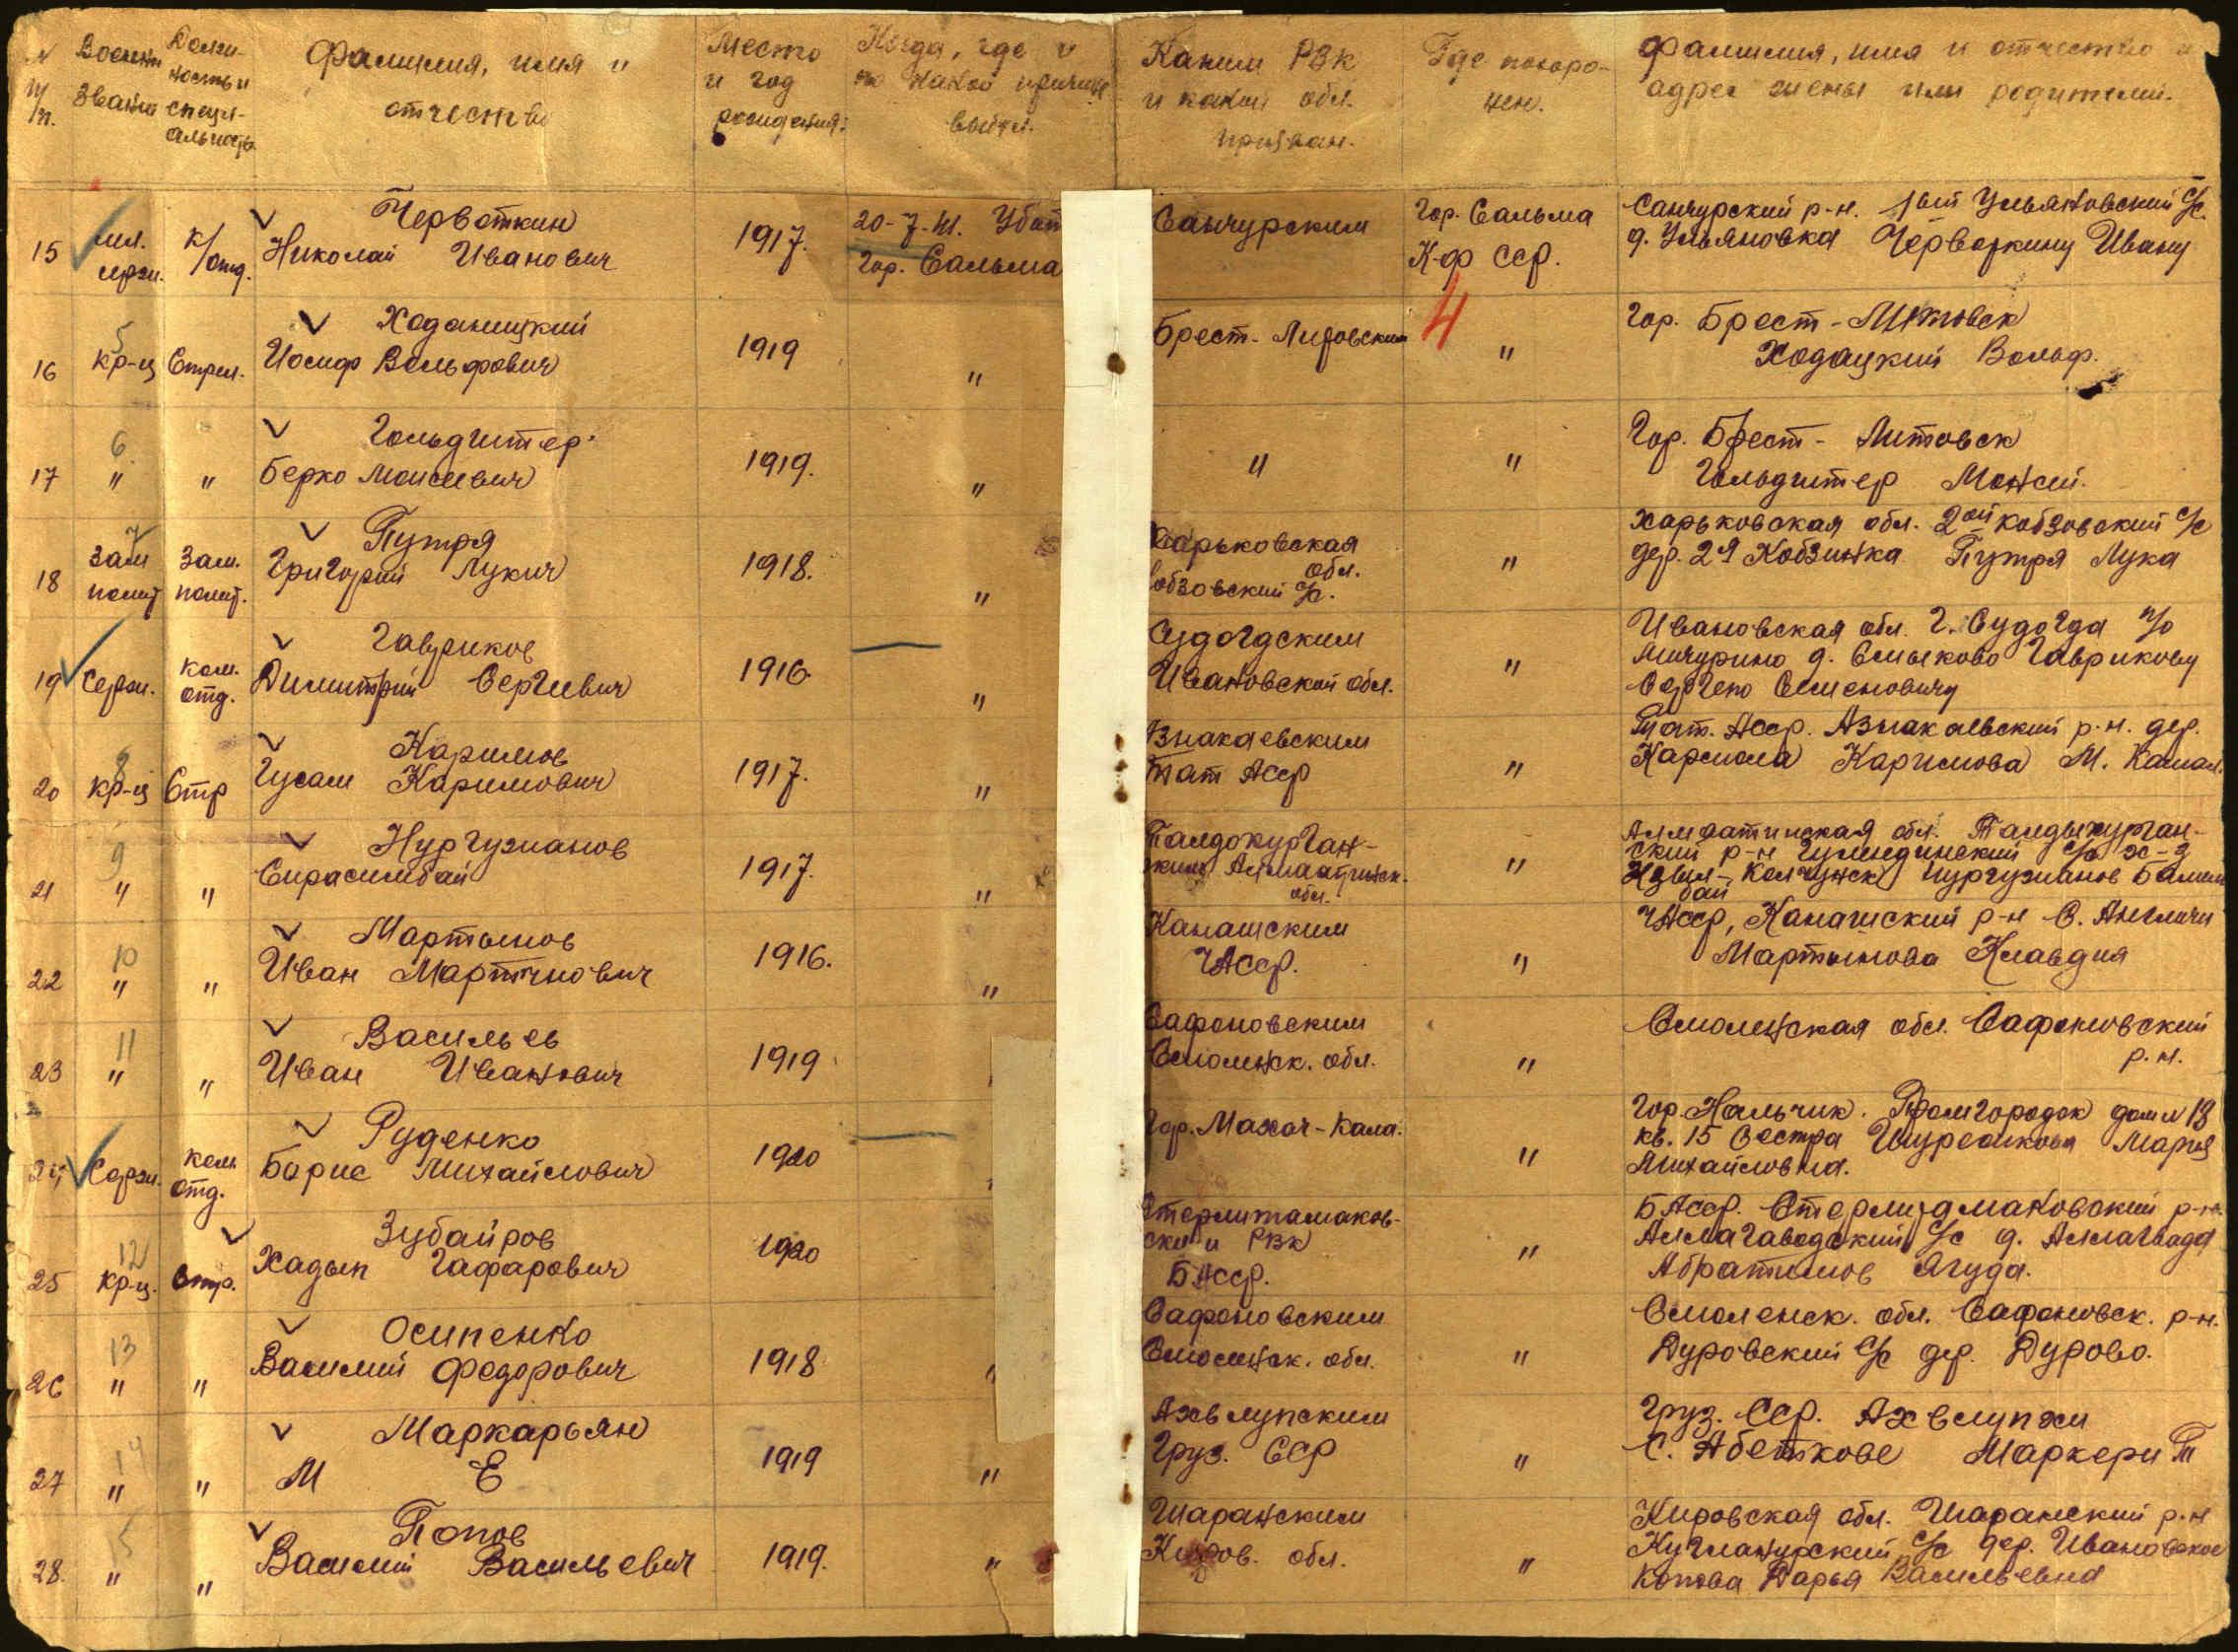 N п/п. Воен. звание Долж-ность и специ-альность Фамилия, имя и отчество Место и год рождения: Когда, где и по какой причине выбыл. Каким РВК и какой обл. призван. Где похоро-нен. Фамилия, имя и отчество и адрес жены или родителей.
15 мл. серж. к/отд. Червоткин Николай Иванович 1917. 20-7-41. Убит Гор. Сальма Санчурским Гор. Сальма К-ф ССР. Санчурский р-н. 1ый Ульяновский с/с. д. Ульяновка Червоткину Ивану
4
16 5 кр-ц Стрел. Ходаницкий Иосиф Вольфович 1919 " Брест-Литовским " Гор. Брест-Литовск Ходацкий Вольф.
17 6 " " Гольдштер Берко Моисеевич 1919. " " " Гор. Брест-Литовск Гольдштер Мойсей.
18 7 Зам полит Зам. полит. Путря Григорий Лукич 1918. " Харьковская обл. Кобзовский с/с. " Харьковская обл. 2ой Кобзовский с/с дер. 2я Кобзинка Путря Лука
19 Серж. ком. отд. Гавриков Димитрий Сергеевич 1916. " Судогдским Ивановской обл. " Ивановская обл. г. Судогда п/о Мичурино д. Смыково Гаврикову Сергею Семеновичу
20 8 кр-ц Стр Каримов Гусам Каримович 1917. " Азнакаевским Тат АССР " Тат. АССР. Азнакаевский р-н. дер. Кармала Каримова М. Камал.
21 9 " " Нургужанов Сирасимбай 1917. " Талдокурган-ским Алмаатинск. обл. " Алмаатинская обл. Талдыкурган-ский р-н с/с к-з Кзыл- Нургужанов бай
22 10 " " Мартынов Иван Мартынович 1916. " Канашским ЧАССР. " ЧАССР, Канашский р-н С. Мартынова Клавдия
23 11 " " Васильев Иван Иванович 1919 Сафоновским Смоленск. обл. " Смоленская обл. Сафоновский р.н.
24 Серж. ком отд. Руденко Борис Михайлович 1920 Гор. Махач-Кала. " Гор. Нальчик. Промгородок дом N 18 кв. 15 Сестра Мария Михайловна.
25 12 кр-ц. Стр. Зубайров Хадып Гафарович 1920 Стерлитамаков-ским РВК БАССР. " БАССР. Стерлитамаковский р-н. с/с д. Абратимов Ягуда.
26 13 " " Осипенко Василий Федорович 1918 " Сафоновским Смоленск. обл. " Смоленск. обл. Сафоновск. р-н. Дуровский с/с дер. Дурово.
27 14 " " Маркарьян М Е 1919 " Груз. ССР " Груз. ССР. С. Абеткове Маркери Т
28. 15 " " Попов Василий Васильевич 1919. " Шаранским Киров. обл. " Кировская обл. Шаранский р-н с/с дер. Ивановское Дарья Васильевна